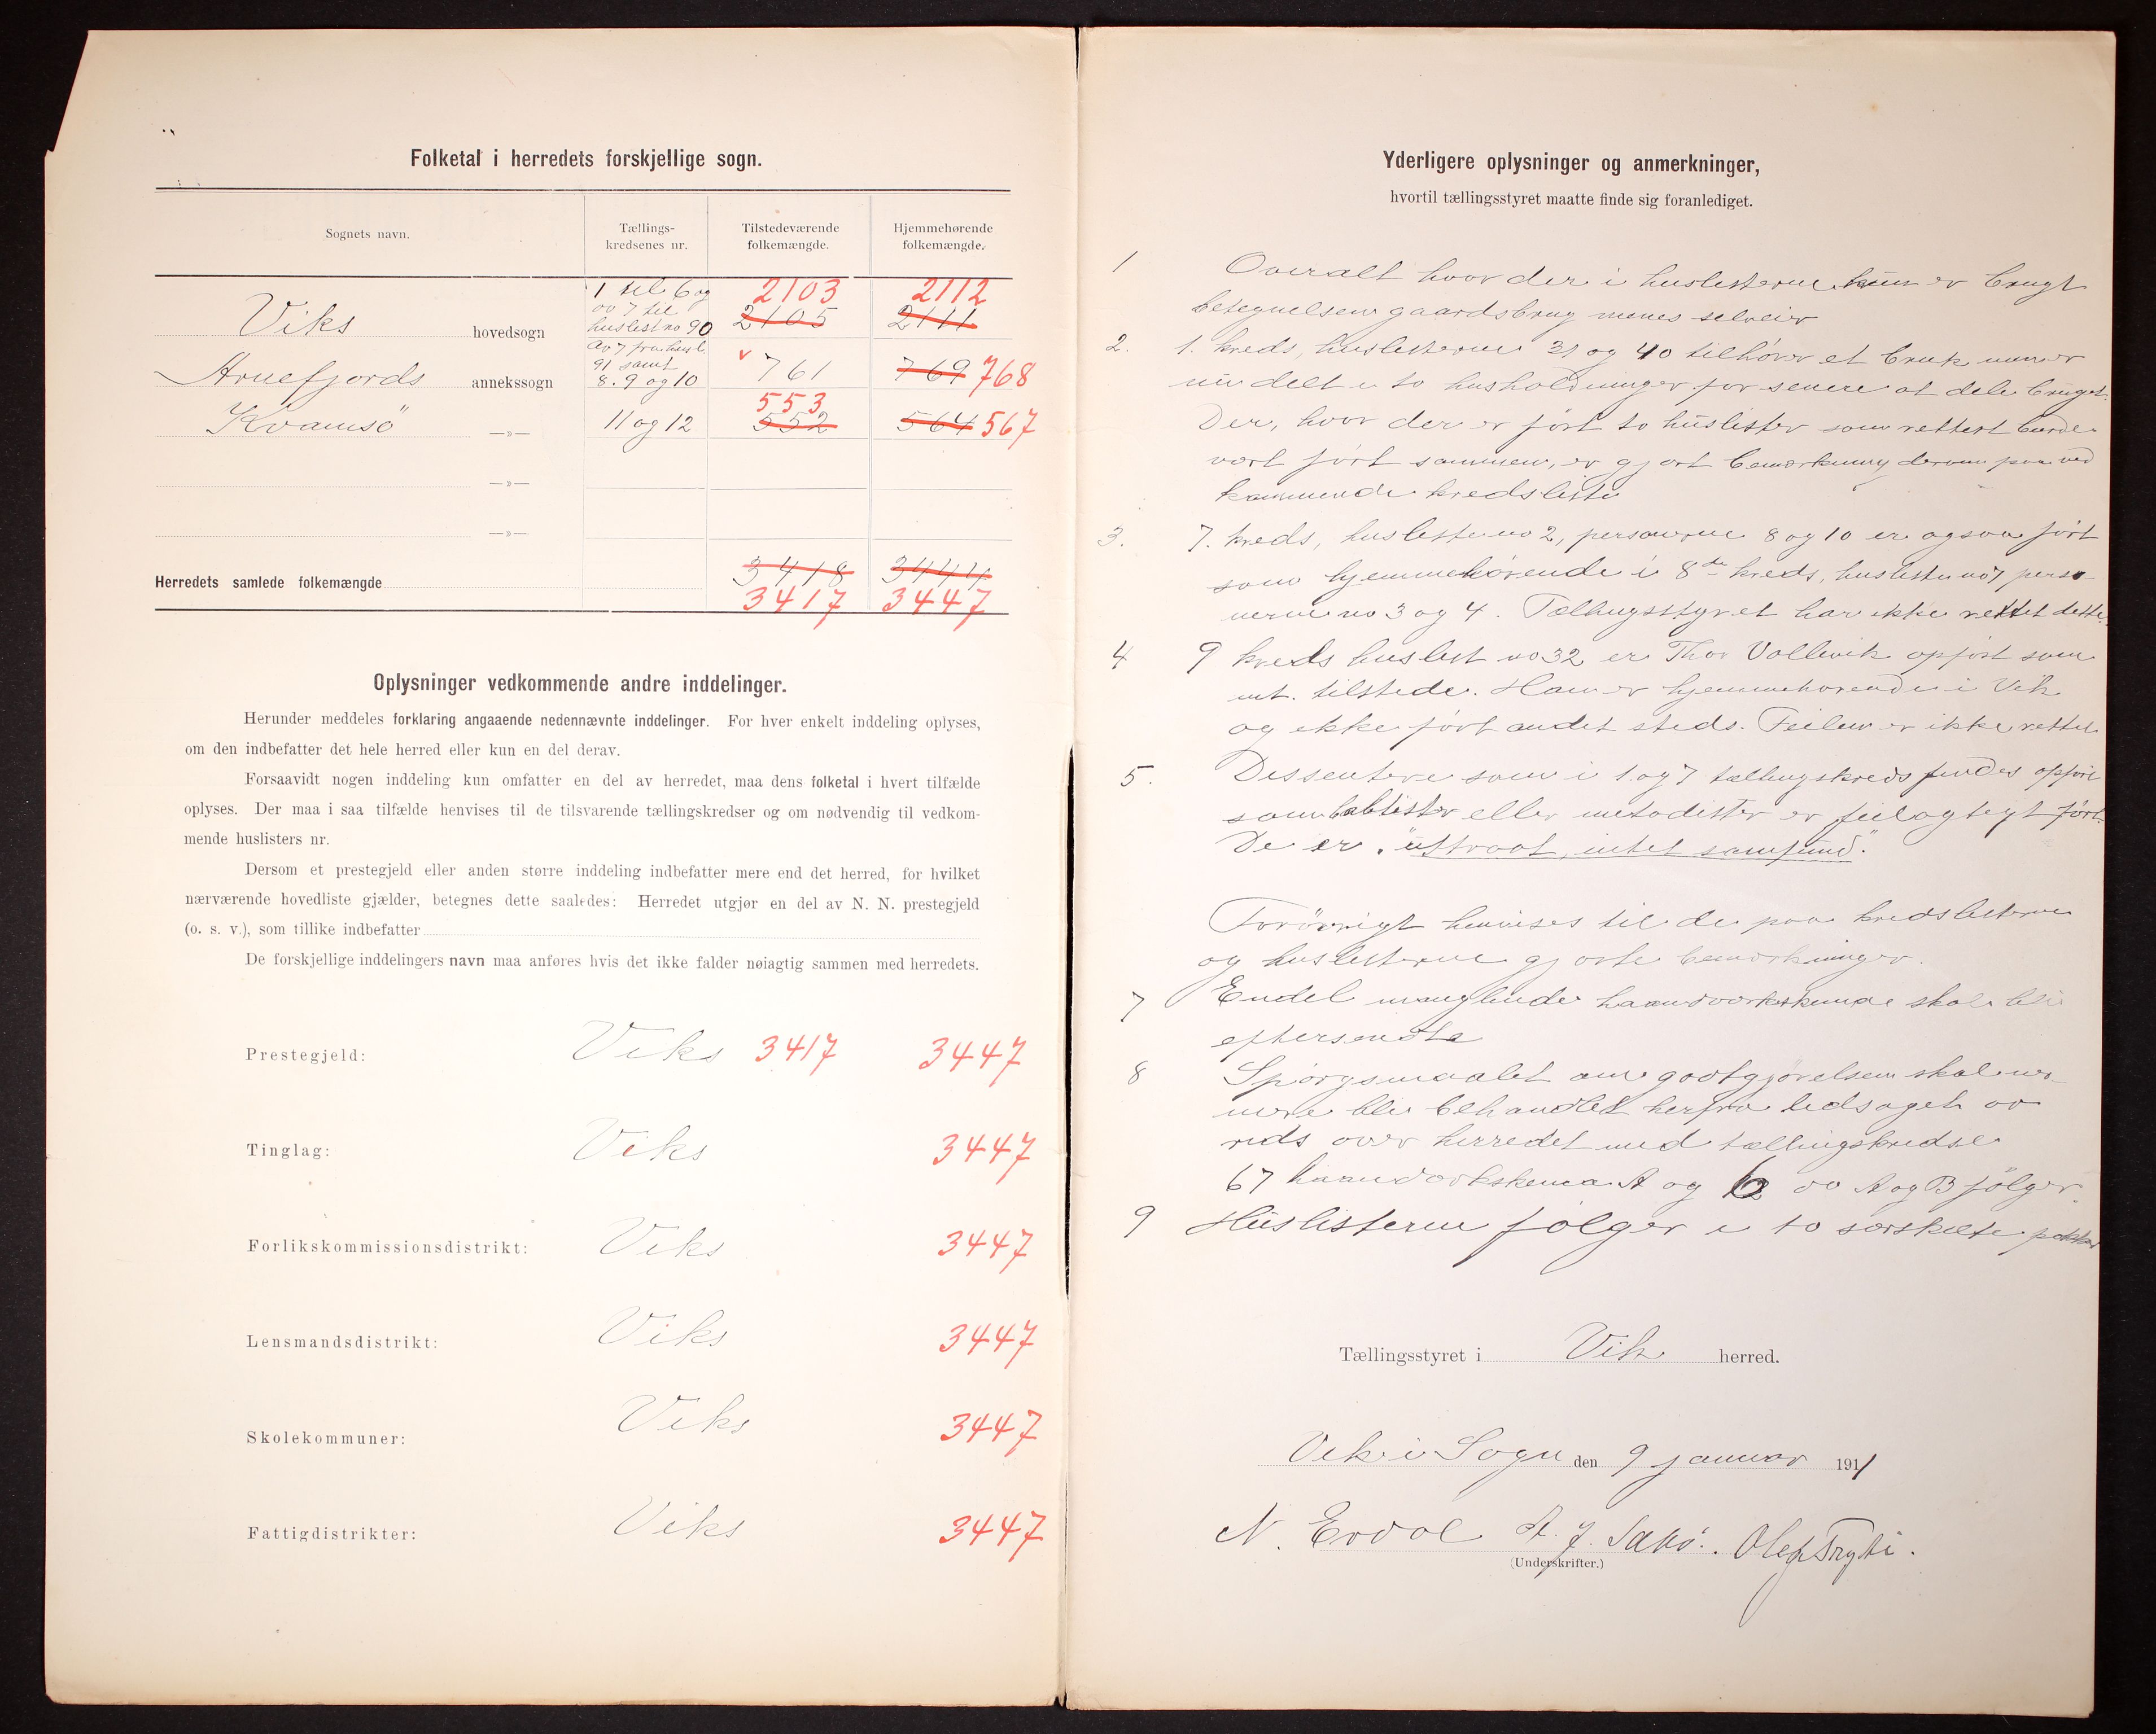 Folketal i herredets forskjellige sogn.
Sognets navn.
Tællings-
kredsenes nr.
Tilstedeværende
folkemængde.
Hjemmehørende
folkemængde.
1 til 6 og
av 7 til
huslist no 90
2103
2112
Viks hovedsogn
2105
2111
av 7 fra husl.
91 samt
8. 9 og 10
Arnefjords annekssogn
761
769 768
553
Kvamsö —»— 11 og 12
552
564 567
—»—
—»—
3418 3444
Herredets samlede folkemængde
3417 3447
Oplysninger vedkommende andre inddelinger.
Herunder meddeles forklaring angaaende nedennævnte inddelinger. For hver enkelt inddeling oplyses,
om den indbefatter det hele herred eller kun en del derav.
Forsaavidt nogen inddeling kun omfatter en del av herredet, maa dens folketal i hvert tilfælde
oplyses. Der maa i saa tilfælde henvises til de tilsvarende tællingskredser og om nødvendig til vedkom-
mende huslisters nr.
Dersom et prestegjeld eller anden større inddeling indbefatter mere end det herred, for hvilket
nærværende hovedliste gjælder, betegnes dette saaledes: Herredet utgjør en del av N. N. prestegjeld
(o. s. v.), som tillike indbefatter
De forskjellige inddelingers navn maa anføres hvis det ikke falder nøiagtig sammen med herredets.
Prestegjeld: Viks 3417 3447
Tinglag: Viks 3447
Forlikskommissionsdistrikt: Viks 3447
Lensmandsdistrikt: Viks 3447
Skolekommuner: Viks 3447
Fattigdistrikter: Viks 3447
Yderligere oplysninger og anmerkninger,
hvortil tællingsstyret maatte finde sig foranlediget.
1 Overalt hvor der i huslisterne kun er brugt
betegnelsen gaardsbrug menes selveier
2. 1. kreds, huslisterne 31 og 40 tilhører et bruk men er
nu delt i to husholdninger for senere at dele bruget.
Der, hvor der er ført to huslister som rettest burde
vært ført sammen, er gjort bemærkning derom paa ved
kommende kredsliste
3. 7. kreds, husliste no 2, personerne 8 og 10 er ogsaa ført
som hjemmehörende i 8de kreds, husliste no 7 perso-
nerne no 3 og 4. Tællingsstyret har ikke rettet dette.
4 9 kreds huslist no 32 er Thor Vollevik opført som
mt. tilstede. Han er hjemmehørende i Vik
og ikke ført andet steds. Feilen er ikke rettet
5. Dissentere som i 1. og 7 tællingskreds findes opført
som babtister eller metodister er feilagtigt ført.
De er "utraadt, intet samfund".
Forövrigt henvises til de paa kredslisterne
og huslisterne gjorte bemærkninger.
7 Endel manglende haandværkskema skal bli
eftersendte
8 Spörgsmaalet om godtgjörelsen skal næ-
mere bli behandlet herfra ledsaget av
rids over herredet med tællingskredse
67 haandverkskema A og 6 av A og B fölger.
9 Huslisterne følger i to særskilte pakker
Tællingsstyret i Vik herred.
Vik i Sogn den 9 januar 1911
N. Erdal A. J. Sakö. Olef Tryti.
(Underskrifter.)